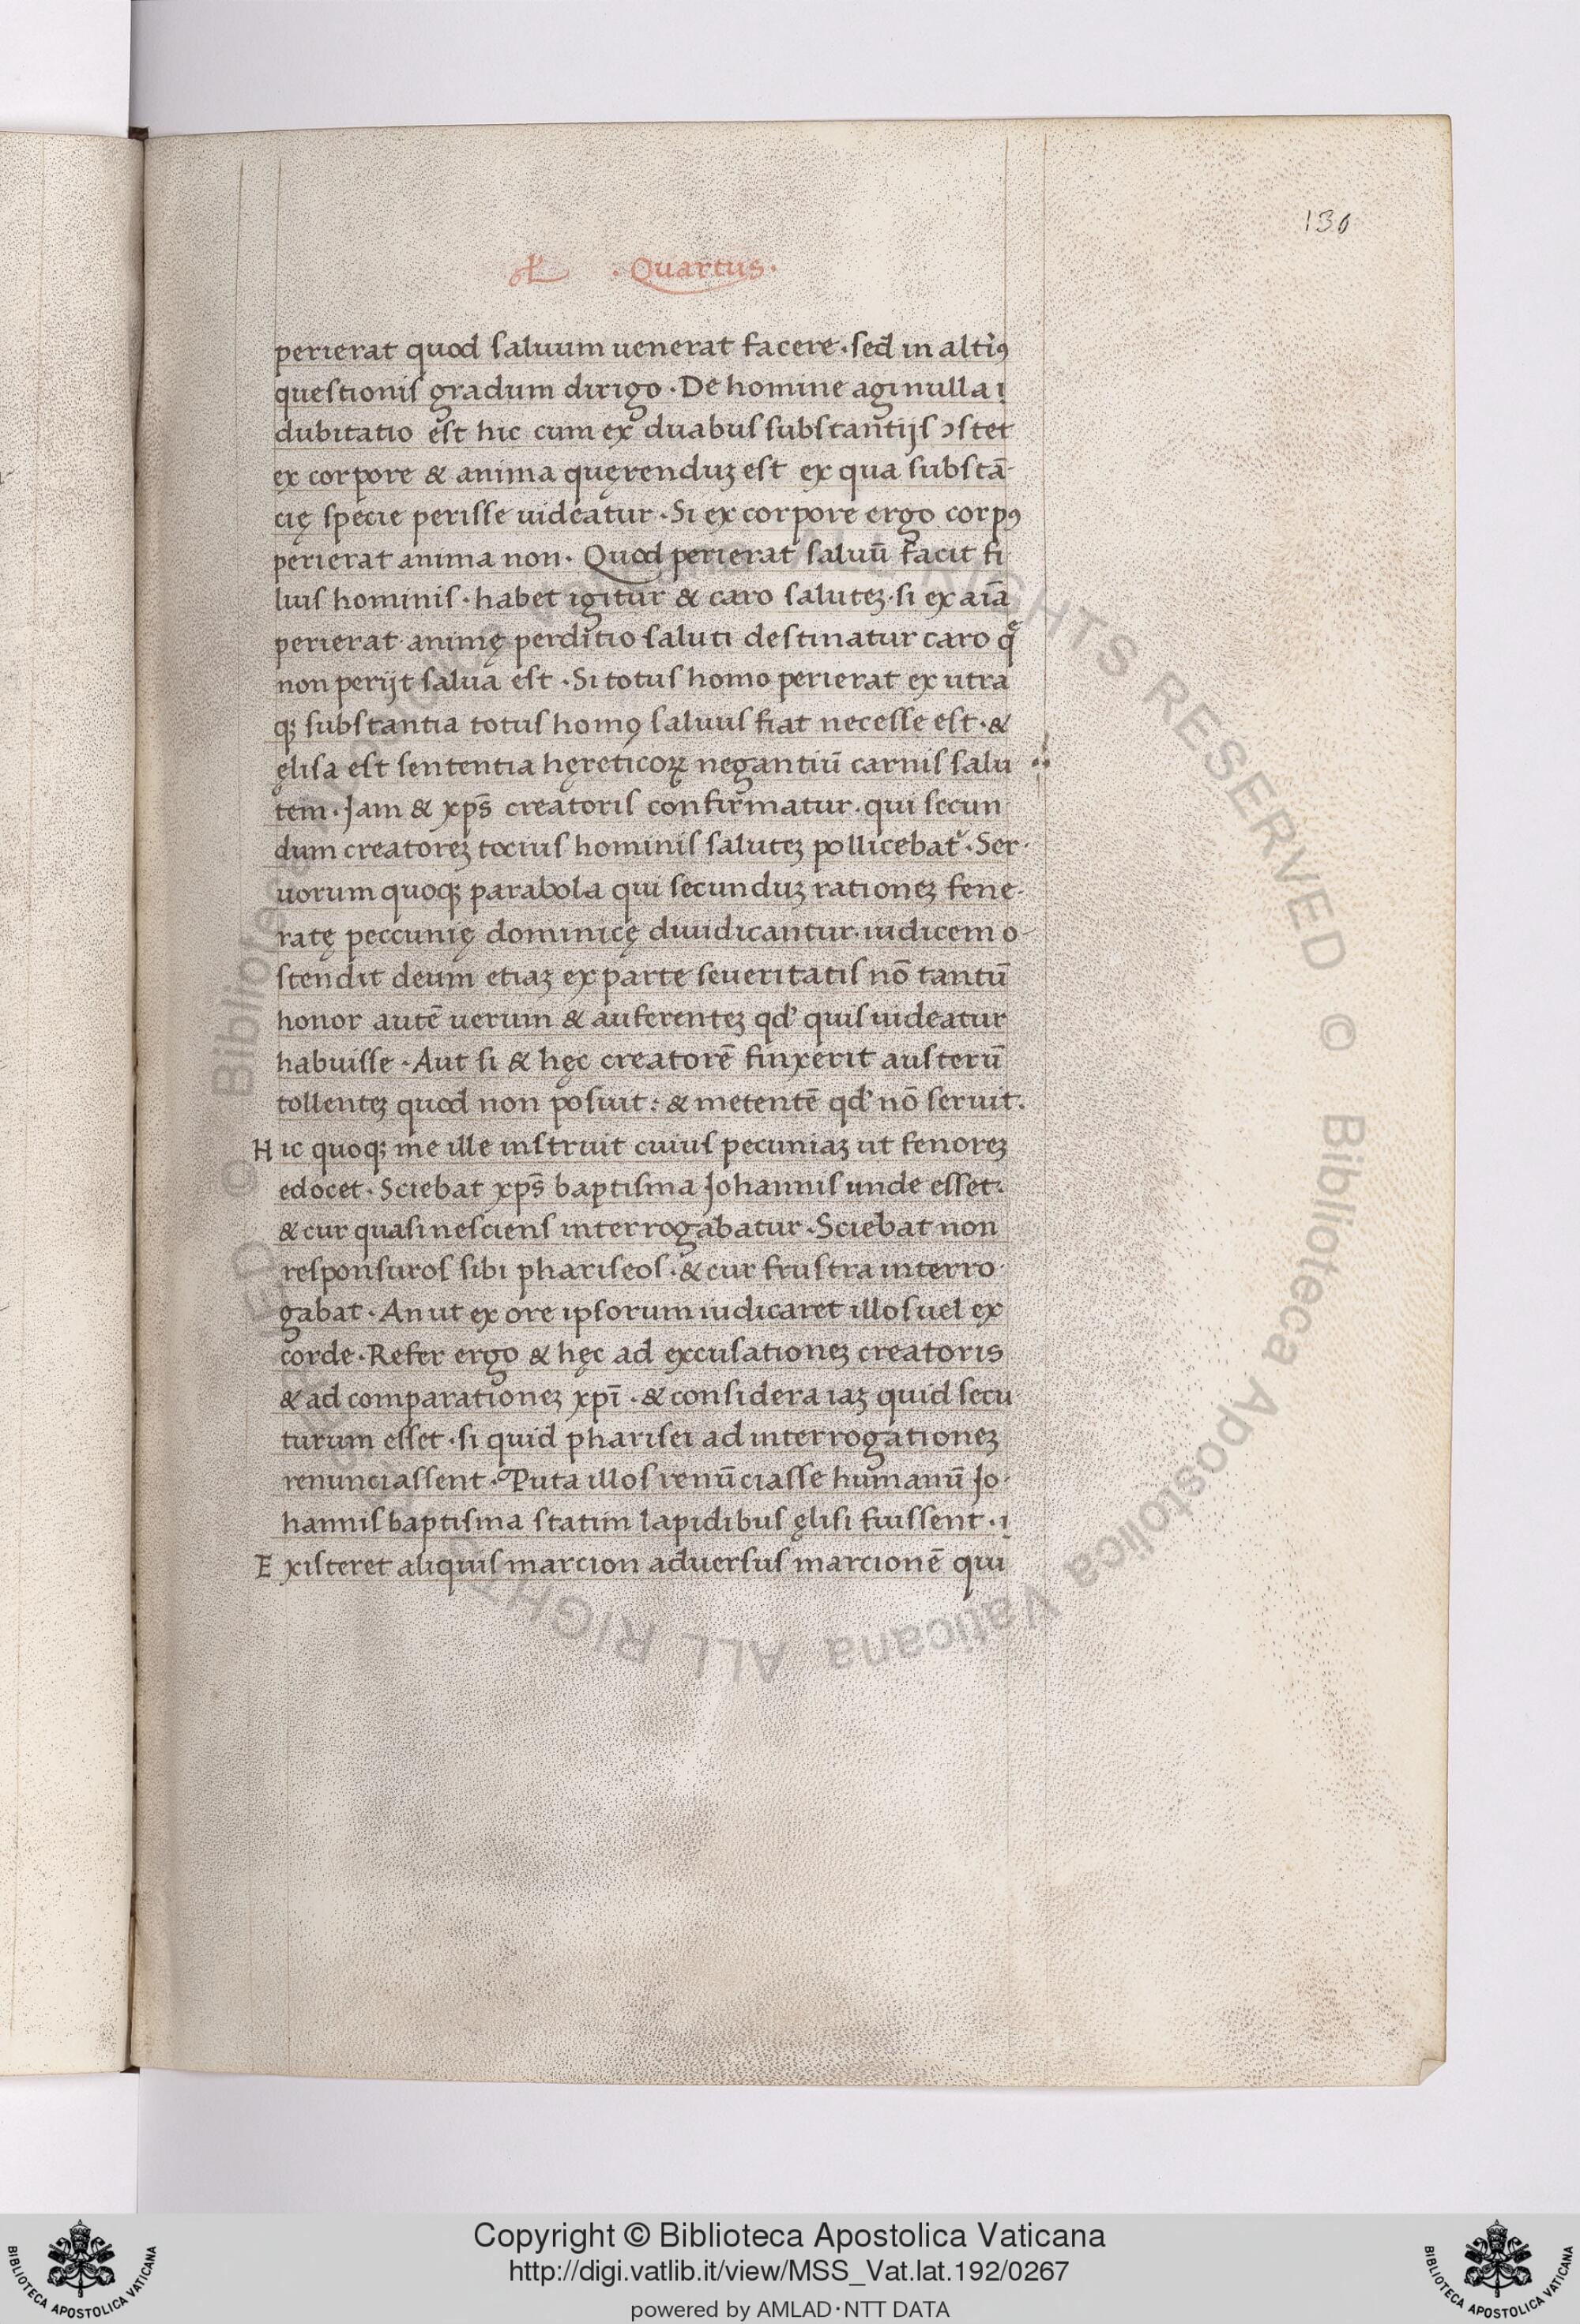 130
· Quartus ·
perierat quod saluum uenerat facere · sed in altiꝰ
questionis gradum dirigo · De homine agi nulla i
dubitatio est hic cum ex duabus substantijs ɔstet
ex corpore & anima quęrenduꝫ est ex qua substā-
cię specie perisse uideatur · Si ex corpore ergo corpꝰ
perierat anima non · Quod perierat saluū facit fi
lius hominis · habet igitur & caro saluteꝫ · si ex aīa
perierat animę perditio saluti destinatur caro qͤ
non perijt salua est · Si totus homo perierat ex utra
qꝫ substantia totus homꝰ saluus fiat necesse est · &
ęlisa est sententia hęreticoꝝ negantiū carnis salu
tem · Jam & xp̄s creatoris confirmatur · qui secun
dum creatoreꝫ tocius hominis saluteꝫ pollicebat᷑ · Ser-
uorum quoqꝫ parabola qui secunduꝫ rationeꝫ fene-
ratę peccunię dominicę diuidicantur · iudicem o-
stendit deum etiaꝫ ex parte seueritatis nō tantū
honor autē uerum & auferenteꝫ qd' quis uideatur
habuisse · Aut si & hęc creatorē finxerit austerū
tollenteꝫ quod non posuit : & metentē qd' nō seruit.
Hic quoqꝫ me ille instruit cuius pecuniaꝫ ut fenoreꝫ
edocet · Sciebat xp̄s baptisma Johannis unde esset.
& cur quasi nesciens interrogabatur · Sciebat non
responsuros sibi phariseos · & cur frustra interro-
gabat · An ut ex ore ipsorum iudicaret illos uel ex
corde · Refer ergo & hęc ad excusationeꝫ creatoris
& ad comparationeꝫ xpī · & considera iaꝫ quid secu
turum esset · si quid pharisei ad interrogationeꝫ
renunciassent · Puta illos renūciasse humanū Jo-
hannis baptisma statim lapidibus ęlisi fuissent · i
Existeret aliquis marcion aduersus marcionē qui
© Biblioteca Apostolica Vaticana ALL RIGHTS RESERVED
Copyright © Biblioteca Apostolica Vaticana
http://digi.vatlib.it/view/MSS_Vat.lat.192/0267
powered by AMLAD·NTT DATA
BIBLIOTECA APOSTOLICA VATICANA
BIBLIOTECA APOSTOLICA VATICANA